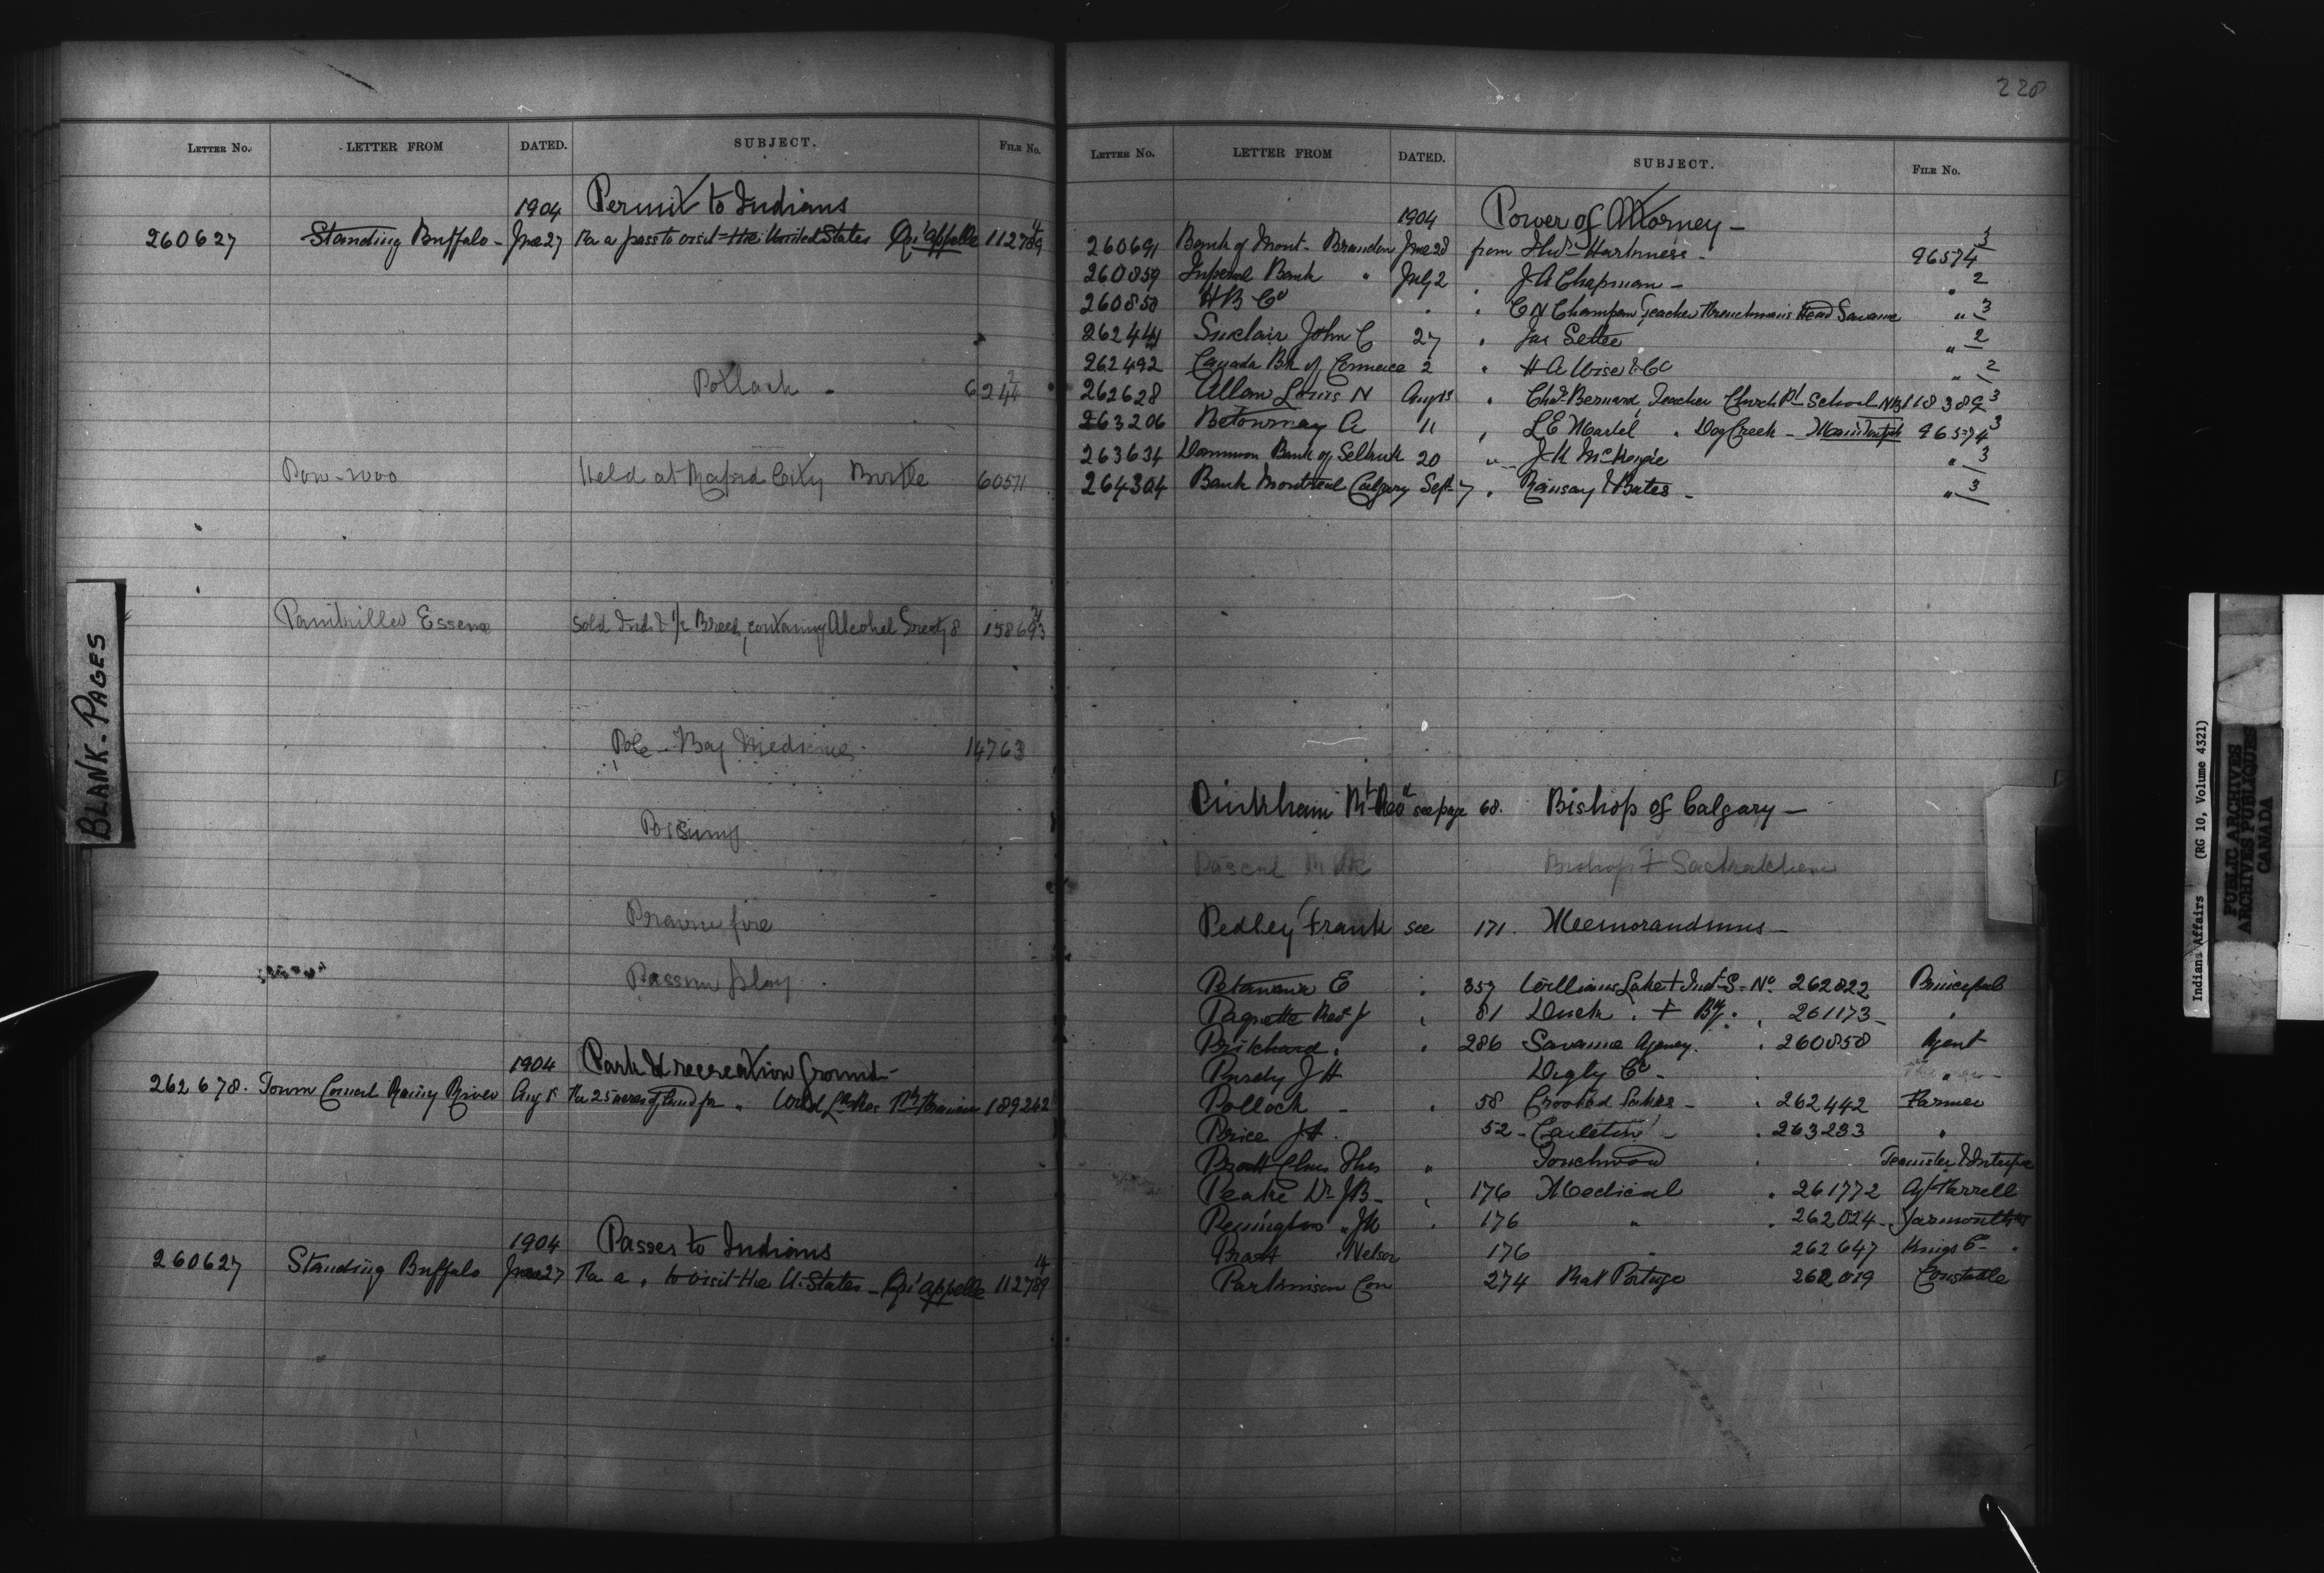 228
LETTER NO. LETTER FROM DATED. SUBJECT. FILE NO.
1904 Permit to Indians
260627 Standing Buffalo - June 27 Re a pass to visit the United States Qu'appelle 112789 4
Pollack - 6244 2
Pow-wow Held at Rapid City Birtle 60511
Painkiller Essence Sold Ind. & 1/2 Breed, containing Alcohol Treaty 8 158693
Pole - Bag Medicine 14763
Prairie fire
Passion play
1904 Park & recreation Ground -
262678. Town Council Rainy River Aug 5 Re 25 acres of land for " 189262
1904 Passes to Indians
260627 Standing Buffalo June 27 Re a " to visit the U. States - Qu'appelle 112789 4
BLANK-PAGES
LETTER NO. LETTER FROM DATED. SUBJECT. FILE NO.
1904 Power of Attorney -
260691 Bank of Mont- Brandon June 28 from Harkness - 96574 3
260859 Imperial Bank " July 2 " J A Chapman - " 2
260858 H B Co " " C N Champion Teacher Frenchmans Head Savanne " 3
262441 Sinclair John C 27 " Jas Settee " 2
262492 Canada Bk of Commerce 2 " H A Wise & Co " 2
262628 Allan Louis N Aug " Chas Bernard, Teacher Church Pt School NB 118389 3
263206 Betournay A 11 " L E Martel " Dog Creek - Manitowpah 96574 3
263634 Dominion Bank of Selkirk 20 " J K McKenzie " 3
264304 Bank Montreal Calgary Sept 7 " Ramsay & Bates - " 3
Pinkham Rt Revd see page 68. Bishop of Calgary -
Pascal Bishop of Saskatchewan
Pedley Frank see 171. Memorandums -
E " 357 Williams Lake Ind S- No 262822 Principal
Paquette Rev J " 81 Duck " + Bg. " 261173 - "
Pritchard " " 286 Savanne Agency. " 260858 Agent
Purdy J H Digby Co - "
Pollock - " 58 Crooked Lakes - " 262442 Farmer
Price J H. 52 - Carleton - " 263233 "
Pratt Chas " Touchwood " Teamster & Interpre
Peake Dr J B - " 176 Medical " 261772
Penington " J W " 176 " " 262024 - Yarmouth
" Nelson 176 " 262647 Kings Co - "
Parkinson Con 274 Rat Portage 262019 Constable
Indian Affairs (RG 10, Volume 4321)
PUBLIC ARCHIVES
ARCHIVES PUBLIQUES
CANADA